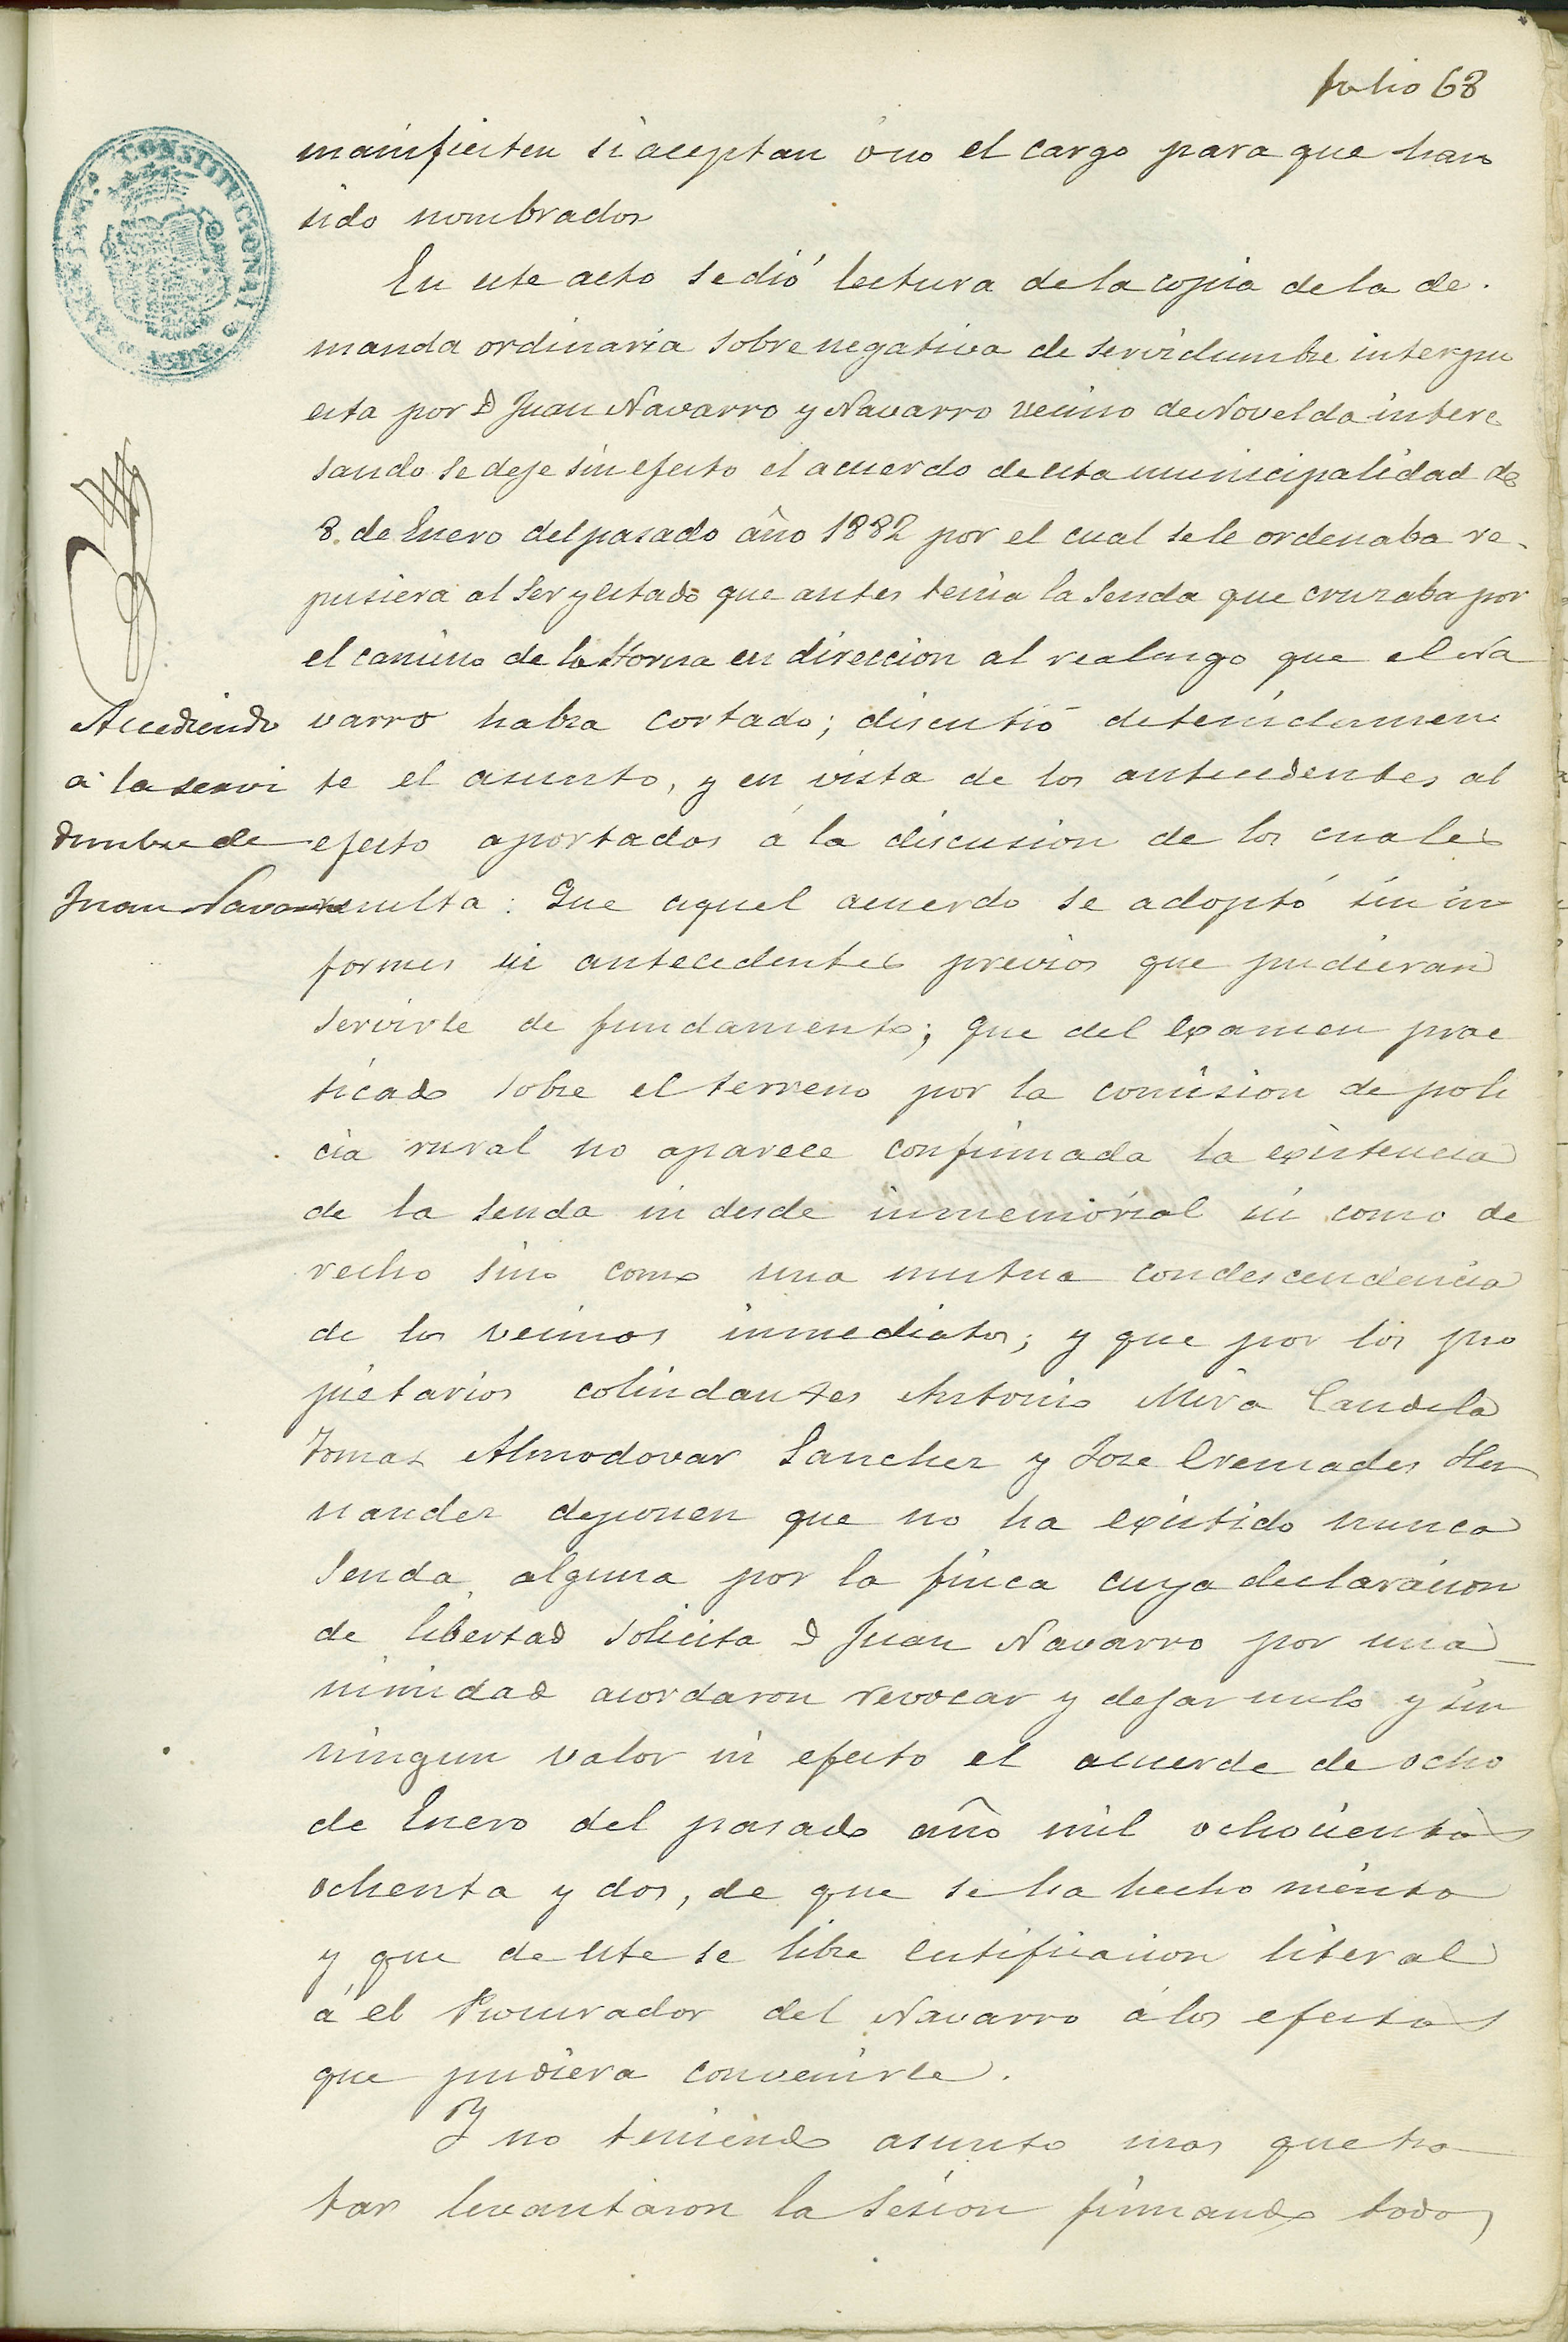 folio 68
manifiesten si aceptan ó no el cargo para que han
sido nombrados
En este acto se dió lectura de la copia de la de-
manda ordinaria sobre negativa de servidumbre interpu
esta por D Juan Navarro y Navarro vecino de Novelda intere
sando se deje sin efecto el acuerdo de esta municipalidad de
8. de Enero del pasado año 1882 por el cual se le ordenaba re-
pusiera al ser y estado que antes tenia la senda que cruzaba por
el camino de la Horna en direccion al realengo que el Na
varro habia cortado; discutió detenidamen
te el asunto, y en vista de los antecedentes al
efecto aportados á la discusion de los cuales
resulta: Que aquel acuerdo se adoptó sin in
formes ni antecedentes previos que pudieran
servirle de fundamento; que del examen prac
ticado sobre el terreno por la comision de poli
cia rural no aparece confirmada la existencia
de la senda ni desde inmemorial ni como de
recho sino como una mutua condescendencia
de los vecinos inmediatos; y que por los pro
pietarios colindantes Antonio Mira Candela
Tomas Almodovar Sanchez y Jose Cremades Her
nandez deponen que no ha existido nunca
senda alguna por la finca cuya declaracion
de libertad solicita D Juan Navarro por una
nimidad acordaron revocar y dejar nulo y sin
ningun valor ni efecto el acuerde de ocho
de Enero del pasado año mil ochocientos
ochenta y dos, de que se ha hecho mérito
y que de este se libre certificacion literal
á el Procurador del Navarro á los efectos
que pudiera convenirle.
Y no teniendo asunto mas que tra
tar levantaron la sesion firmando todos
Accediendo
á la servi
dumbre de
Juan Navarro